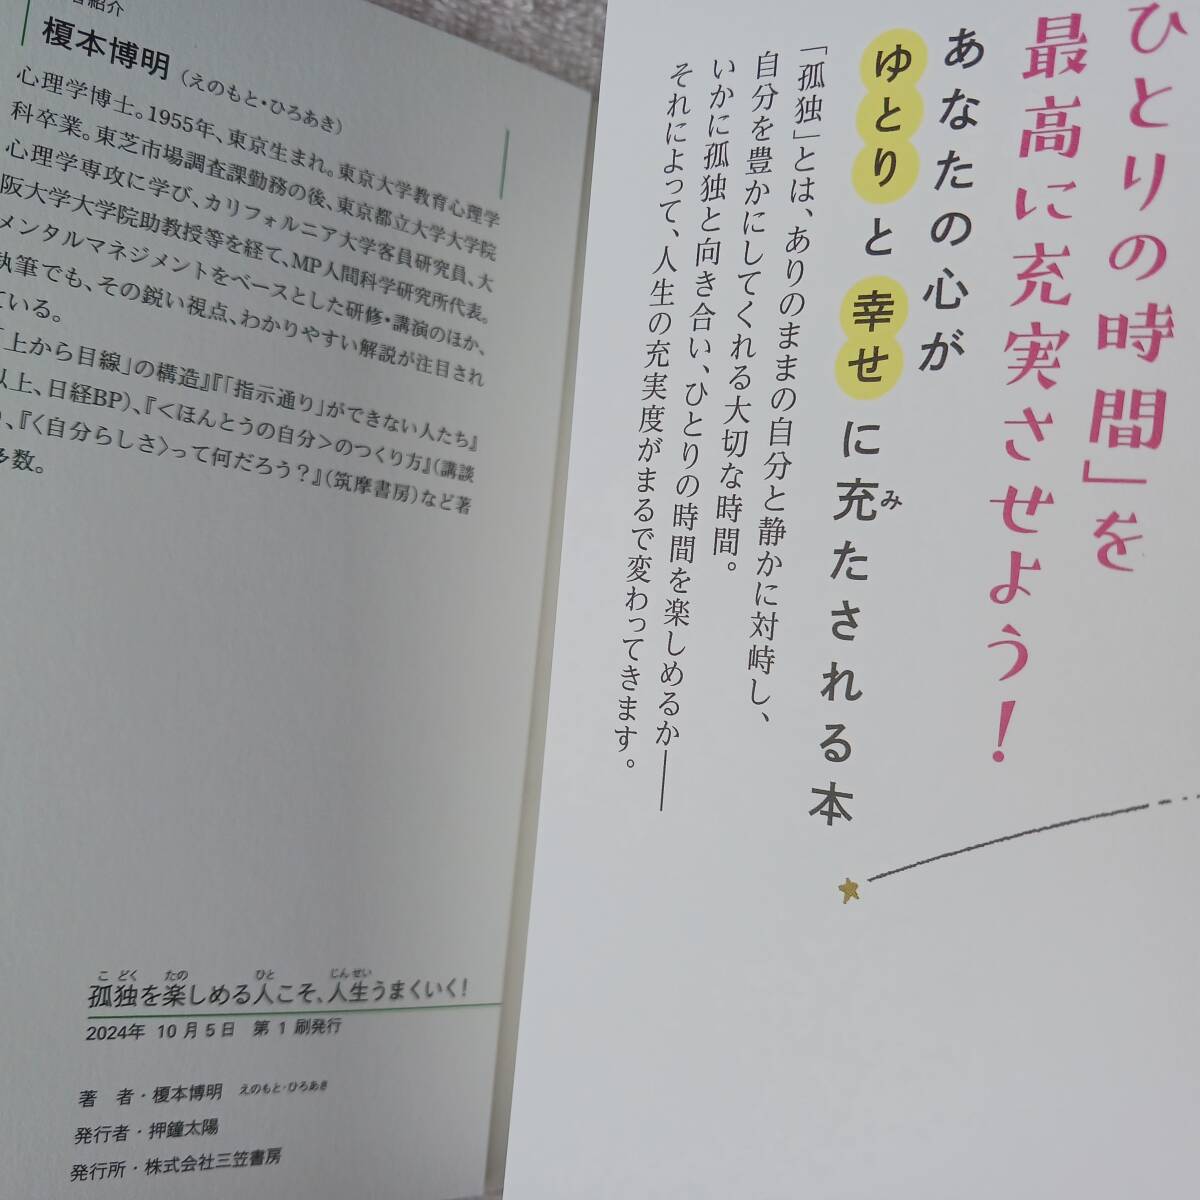 紹介
榎本博明（えのもと・ひろあき）
心理学博士。1955年、東京生まれ。東京大学教育心理学
科卒業。東芝市場調査課勤務の後、東京都立大学大学院
心理学専攻に学び、カリフォルニア大学客員研究員、大
阪大学大学院助教授等を経て、MP人間科学研究所代表。
メンタルマネジメントをベースとした研修・講演のほか、
執筆でも、その鋭い視点、わかりやすい解説が注目され
ている。
「上から目線」の構造』『「指示通り」ができない人たち』
以上、日経BP）、『＜ほんとうの自分＞のつくり方』（講談
、『〈自分らしさ〉って何だろう？』（筑摩書房）など著
多数。
孤独を楽しめる人こそ、人生うまくいく！
こどく たの ひと じんせい
2024年 10月5日 第1刷発行
著 者・榎本博明 えのもと・ひろあき
発行者・押鐘太陽
発行所・株式会社三笠書房
ひとりの時間」を
最高に充実させよう！
あなたの心が
ゆとりと幸せに充たされる本
み
「孤独」とは、ありのままの自分と静かに対峙し、
自分を豊かにしてくれる大切な時間。
いかに孤独と向き合い、ひとりの時間を楽しめるか――
それによって、人生の充実度がまるで変わってきます。